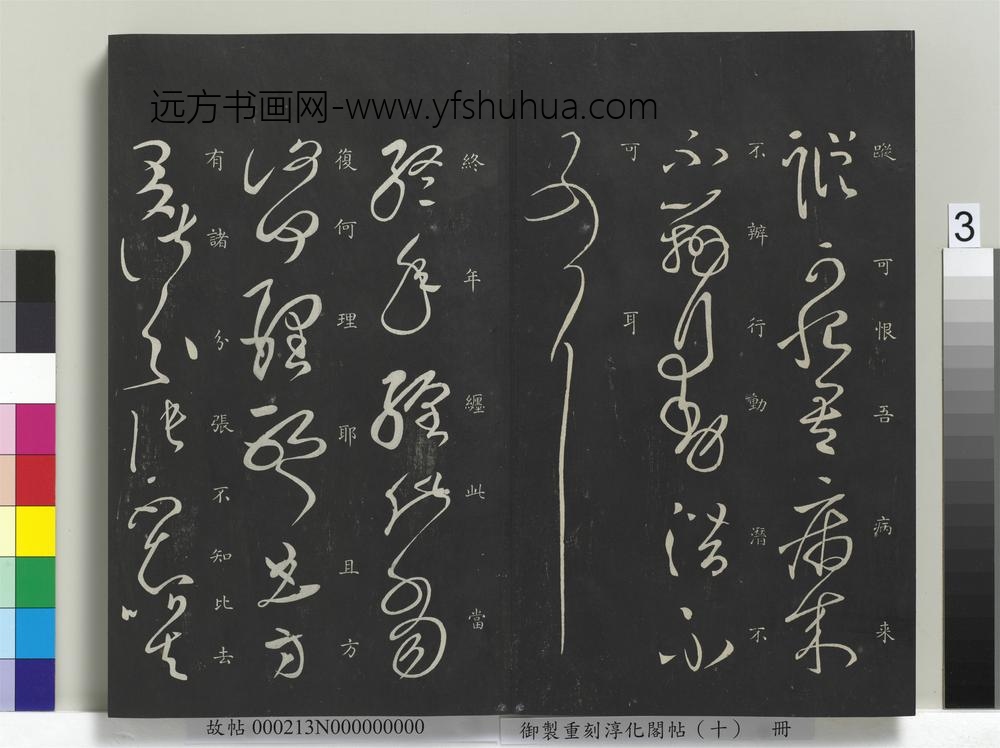 远方书画网-www.yfshuhua.com
蹤可恨吾病来
不辨行動潛不
可耳
終年纏此當
復何理耶且方
有諸分張不知比去
3
故帖 000213N000000000
御製重刻淳化閣帖（十） 冊